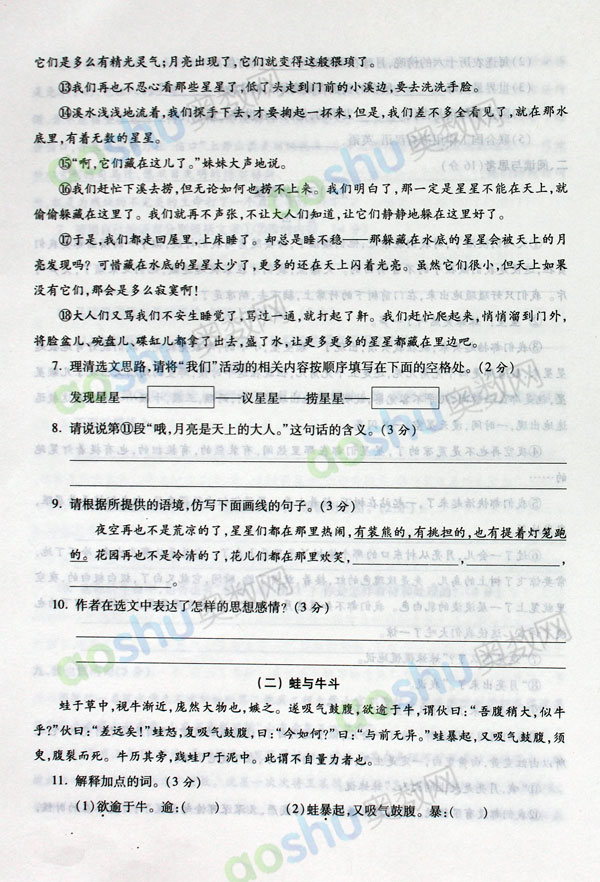 它们是多么有精光灵气；月亮出现了，它们就变得这般猥琐了。
⑬我们再也不忍心看那些星星了，低了头走到门前的小溪边，要去洗洗手脸。
⑭溪水浅浅地流着，我们探手下去，才要掬起一抔来，但是，我们差不多全看见了，就在那水
底里，有着无数的星星。
⑮“啊，它们藏在这儿了。”妹妹大声地说。
⑯我们赶忙下溪去捞，但无论如何也捞不上来。我们明白了，那一定是星星不能在天上，就
偷偷躲藏在这里了。我们就再不声张，不让大人们知道，让它们静静地躲在这里好了。
⑰于是，我们都走回屋里，上床睡了。却总是睡不稳——那躲藏在水底的星星会被天上的月
亮发现吗？可惜藏在水底的星星太少了，更多的还在天上闪着光亮。虽然它们很小，但天上如果
没有它们，那会是多么寂寞啊！
⑱大人们又骂我们不安生睡觉了，骂过一通，就打起了鼾。我们赶忙爬起来，悄悄溜到门外，
将脸盆儿、碗盘儿、碟缸儿都拿了出去，盛了水，让更多更多的星星都藏在里边吧。
7. 理清选文思路，请将“我们”活动的相关内容按顺序填写在下面的空格处。（2 分）
发现星星 议星星 捞星星
8. 请说说第⑪段“哦，月亮是天上的大人。”这句话的含义。（3 分）
9. 请根据所提供的语境，仿写下面画线的句子。（3 分）
夜空再也不是荒凉的了，星星们都在那里热闹，有装熊的，有挑担的，也有提着灯笼跑
的。花园再也不是冷清的了，花儿们都在那里欢笑，__________，__________，
__________。
10. 作者在选文中表达了怎样的思想感情？（3 分）
（二）蛙与牛斗
蛙于草中，视牛渐近，庞然大物也，嫉之。遂吸气鼓腹，欲逾于牛，谓伙曰：“吾腹稍大，似牛
乎？”伙曰：“差远矣！”蛙怒，复吸气鼓腹，曰：“今如何？”曰：“与前无异。”蛙暴起，又吸气鼓腹，须
臾，腹裂而死。牛历其旁，践蛙尸于泥中。此谓不自量力者也。
11. 解释加点的词。（3 分）
（1）欲逾于牛。逾：（ ） （2）蛙暴起，又吸气鼓腹。暴：（ ）
aoshu奥数网
aoshu奥数网
aoshu奥数网
aoshu奥数网
aoshu奥数网